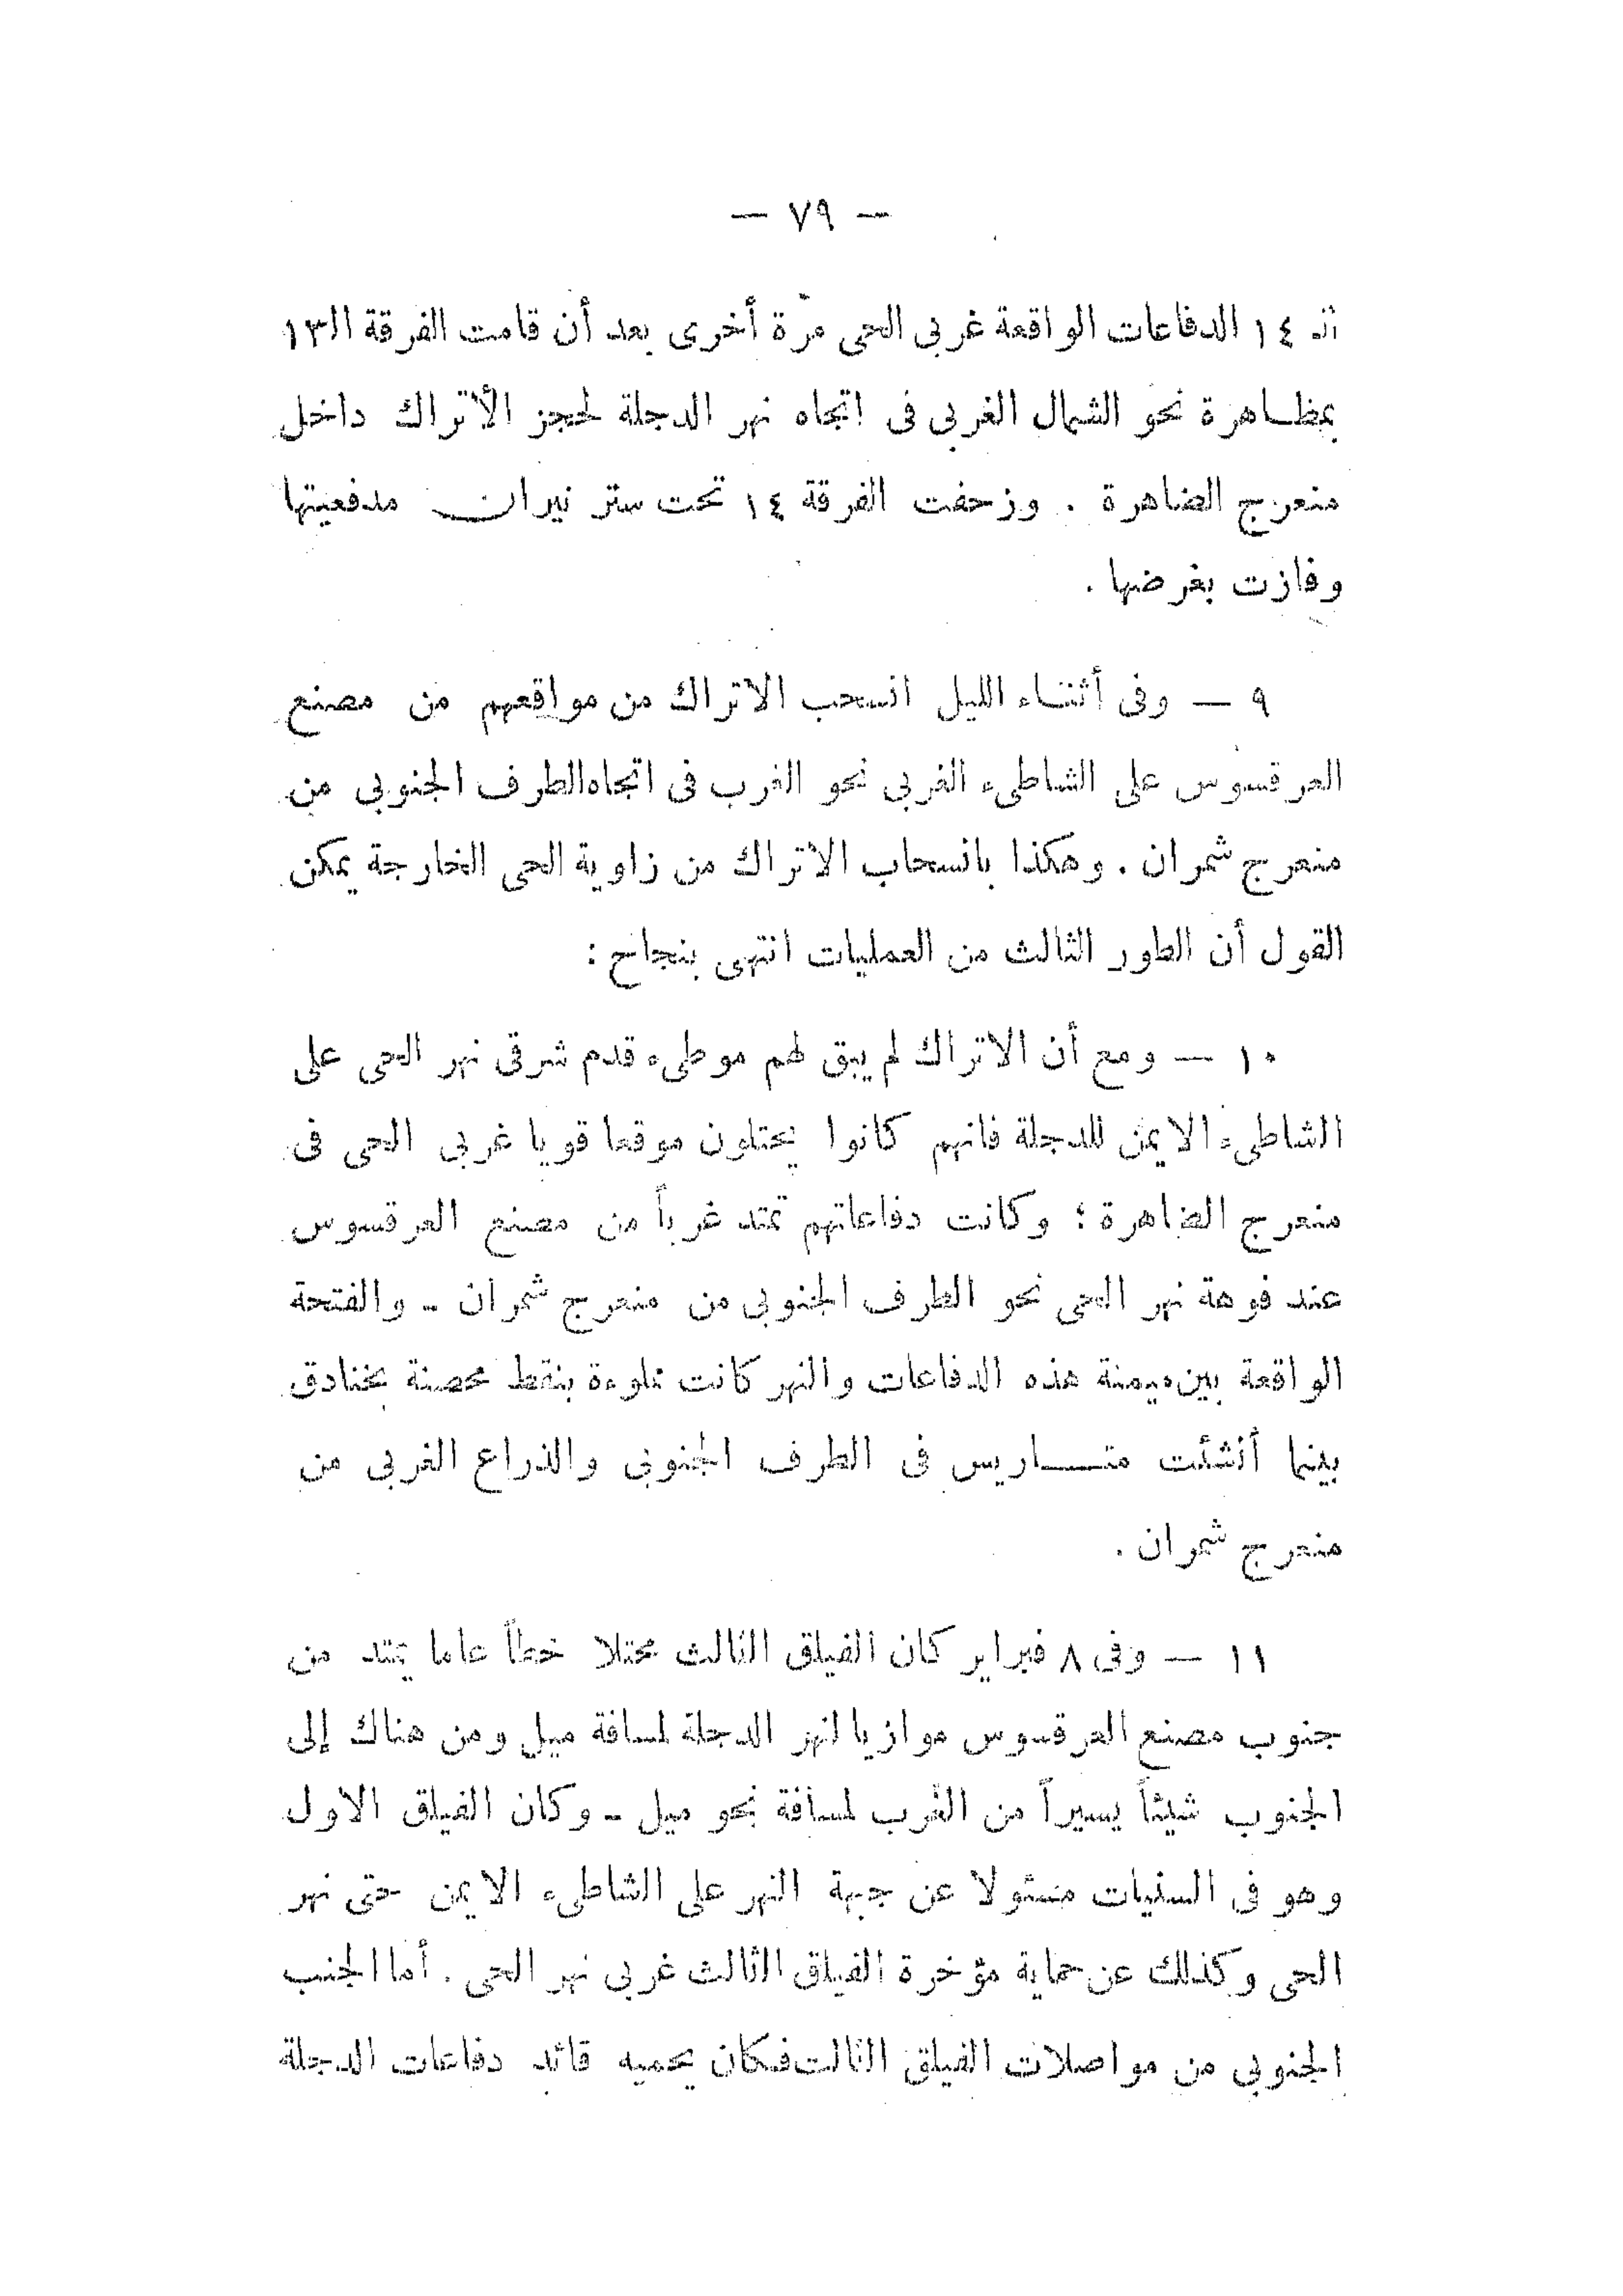 — ٧٩ —
١٤ الدفاعات الواقعة غربى الحى مرّة أخرى بعد أن قامت الفرقة الـ١٣
بمظاهرة نحو الشمال الغربى فى اتجاه نهر الدجلة لحجز الأتراك داخل
منعرج الضاهرة . وزحفت الفرقة ١٤ تحت ستر نيران مدفعيتها
وفازت بغرضها .
٩ — وفى أثناء الليل انسحب الاتراك من مواقعهم من مصنع
العرقسوس على الشاطىء الغربى نحو الغرب فى اتجاه الطرف الجنوبى من
منعرج شمران . وهكذا بانسحاب الاتراك من زاوية الحى الخارجة يمكن
القول أن الطور الثالث من العمليات انتهى بنجاح :
١٠ — ومع أن الاتراك لم يبق لهم موطىء قدم شرقى نهر الحى على
الشاطىء الايمن للدجلة فانهم كانوا يحتلون موقعا قويا غربى الحى فى
منعرج الضاهرة ؛ وكانت دفاعاتهم تمتد غرباً من مصنع العرقسوس
عند فوهة نهر الحى نحو الطرف الجنوبى من منعرج شمران - والفتحة
الواقعة بين ميمنة هذه الدفاعات والنهر كانت مملوءة بنقط محصنة بخنادق
بينما أنشئت متاريس فى الطرف الجنوبى والذراع الغربى من
منعرج شمران .
١١ — وفى ٨ فبراير كان الفيلق الثالث محتلا خطاً عاما يمتد من
جنوب مصنع العرقسوس موازيا لنهر الدجلة لمسافة ميل ومن هناك إلى
الجنوب شيئاً يسيراً من الغرب لمسافة نحو ميل - وكان الفيلق الاول
وهو فى السنيات مسئولا عن جبهة النهر على الشاطىء الايمن حتى نهر
الحى وكذلك عن حماية مؤخرة الفيلق الثالث غربى نهر الحى . أما الجنب
الجنوبى من مواصلات الفيلق الثالث فكان يحميه قائد دفاعات الدجلة